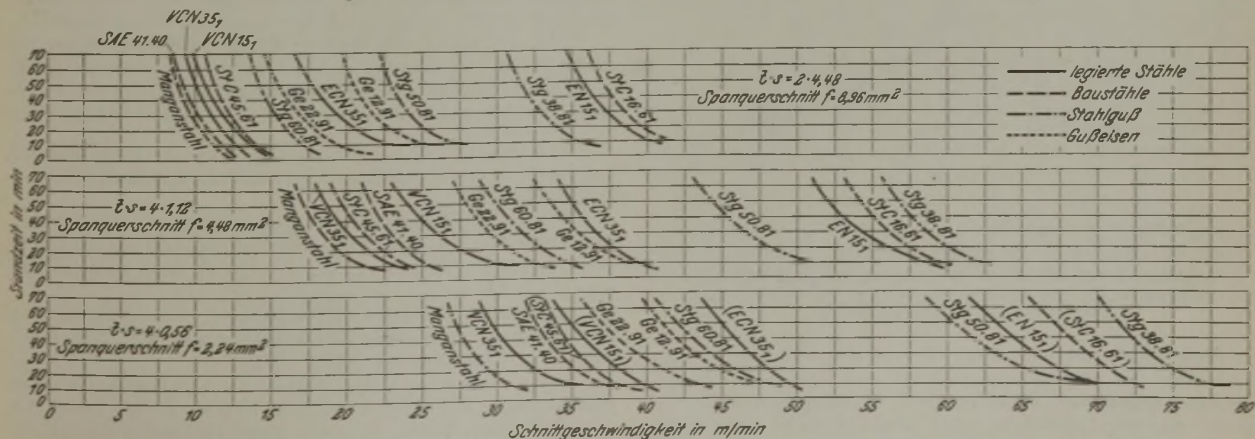 VCN 35₁
SAE 41.40
VCN 15₁
70
60
50
40
30
20
10
0
Manganstahl
StC 45.61
Stg 60.81
Ge 22.91
ECN 35₁
Ge 12.91
Stg 50.81
Stg 38.81
EN 15₁
StC 16.61
t·s=2·4,48
Spanquerschnitt f=8,96mm²
legierte Stähle
Baustähle
Stahlguß
Gußeisen
Standzeit in min
70
60
50
40
30
20
10
0
t·s=4·1,12
Spanquerschnitt f=4,48mm²
Manganstahl
VCN 35₁
StC 45.61
SAE 41.40
VCN 15₁
Ge 22.91
Stg 60.81
Ge 12.91
ECN 35₁
Stg 50.81
EN 15₁
StC 16.61
Stg 38.81
70
60
50
40
30
20
10
0
t·s=4·0,56
Spanquerschnitt f=2,24mm²
Manganstahl
VCN 35₁
SAE 41.40
(StC 45.61)
(VCN 15₁)
Ge 22.91
Ge 12.91
Stg 60.81
(ECN 35₁)
Stg 50.81
(EN 15₁)
(StC 16.61)
Stg 38.81
0 5 10 15 20 25 30 35 40 45 50 55 60 65 70 75 80
Schnittgeschwindigkeit in m/min